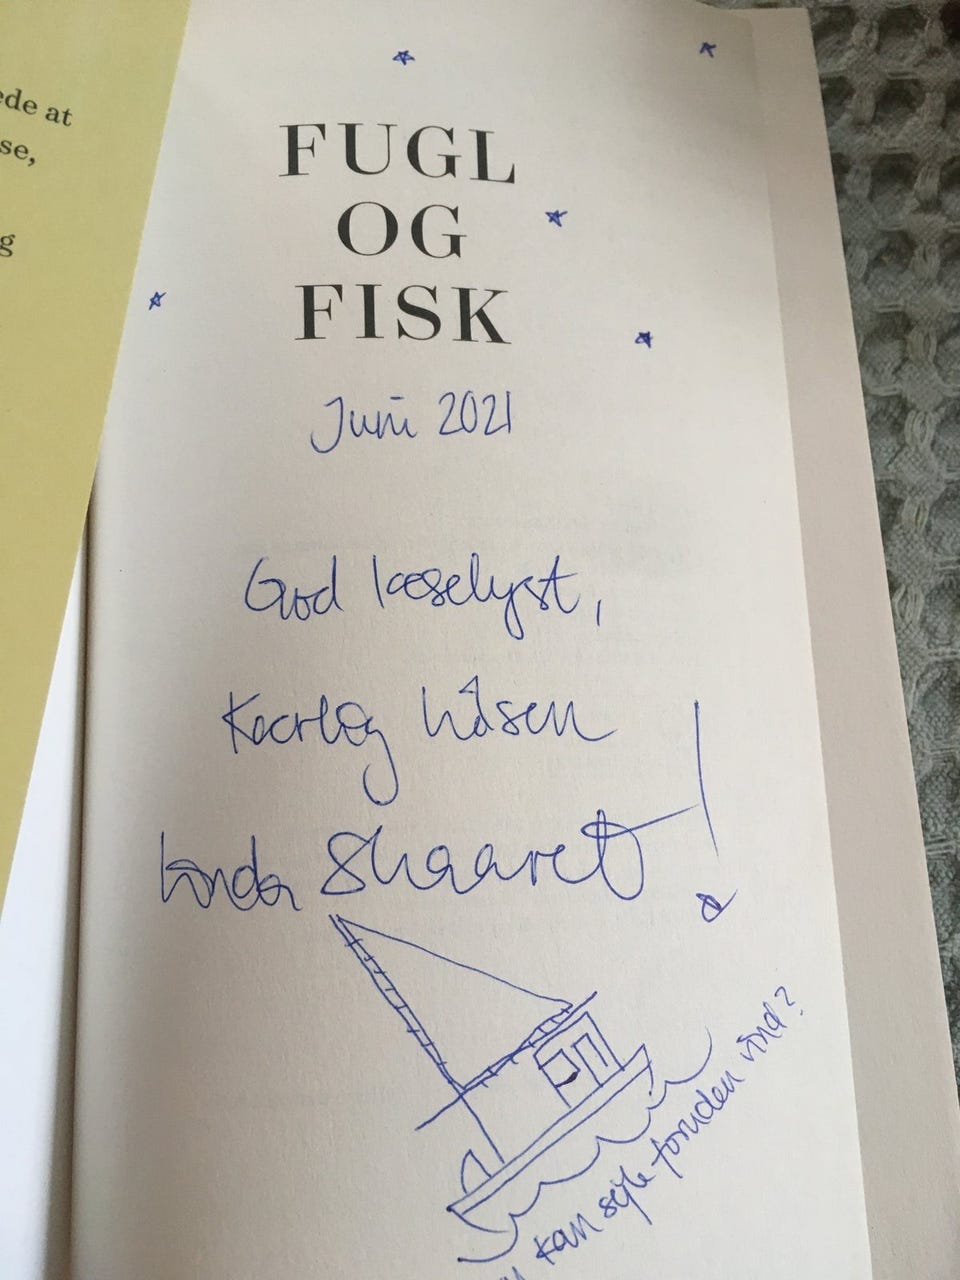 ede at
se,
g
FUGL
OG
FISK
Juni 2021
God læselyst,
Kærlig hilsen
Linda Skaaret!
kan sejle foruden vind?